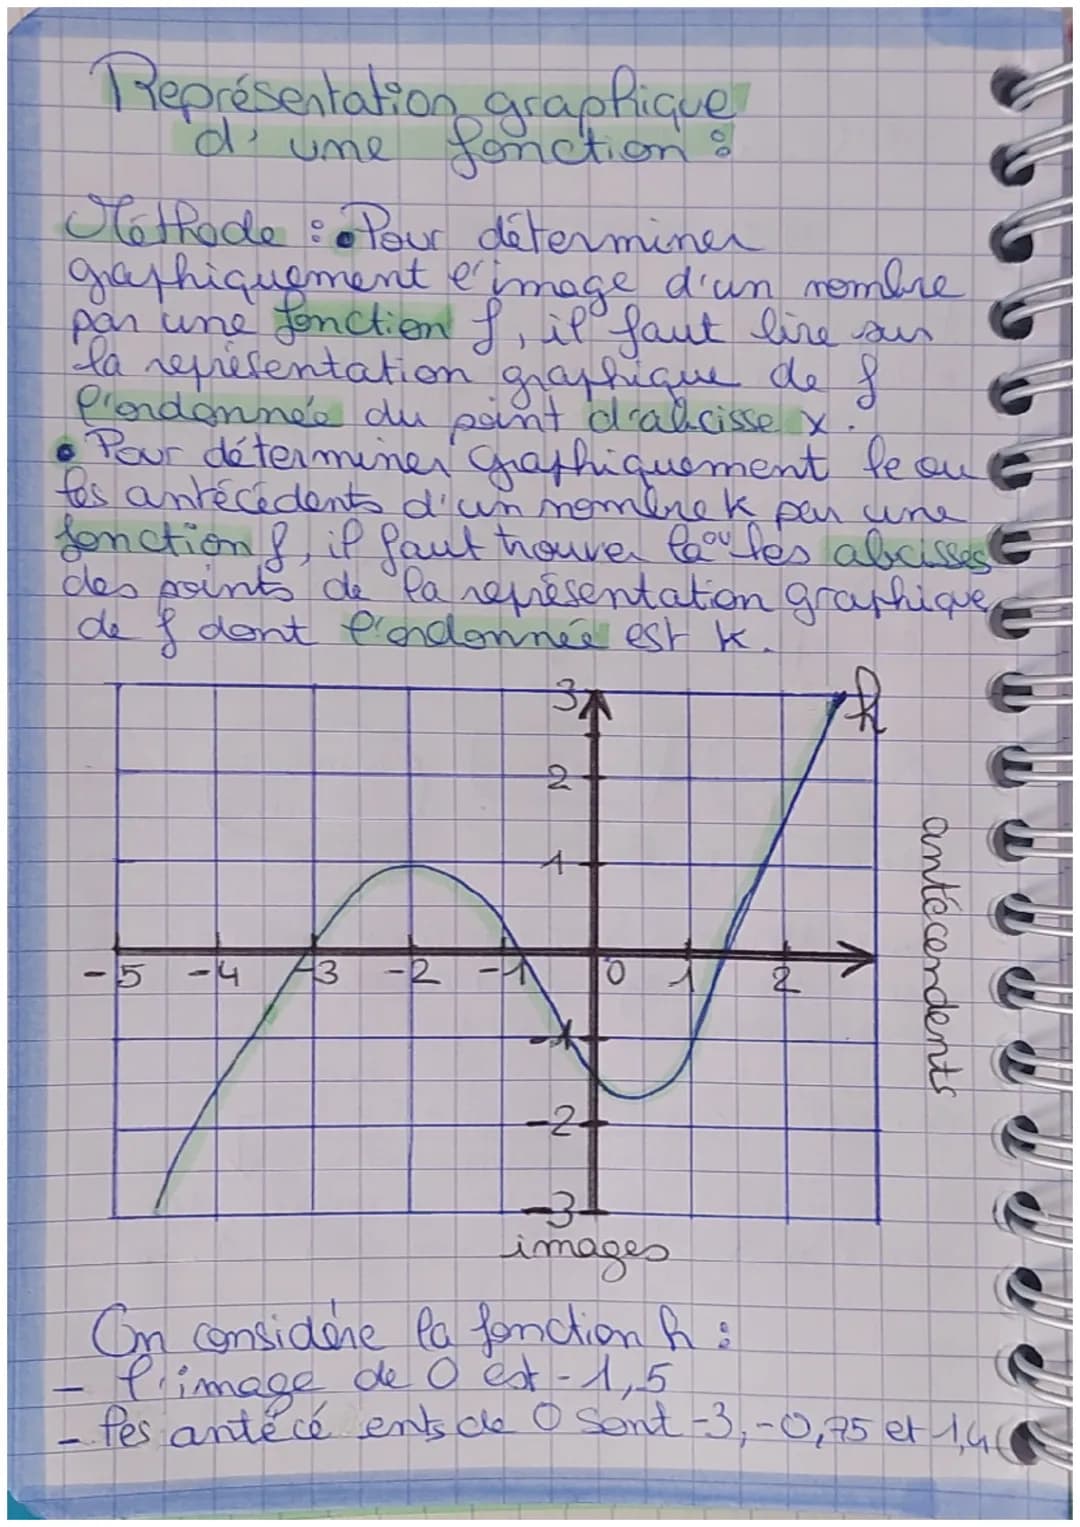 Représentation graphique
d'une fonction :
Méthode : • Pour déterminer
graphiquement l'image d'un nombre
par une fonction f, il faut lire sur
la représentation graphique de f
l'ordonnée du point d'abcisse x.
• Pour déterminer graphiquement le ou
les antécédents d'un nombre k par une
fonction f, il faut trouver la ou les abcisses
des points de la représentation graphique
de f dont l'ordonnée est k.
3
h
2
1
-5 -4 -3 -2 -1 0 1 2
-1
-2
-3
antécendents
images
On considère la fonction h :
- l'image de 0 est -1,5
- les antécé ents de 0 sont -3, -0,75 et 1,4